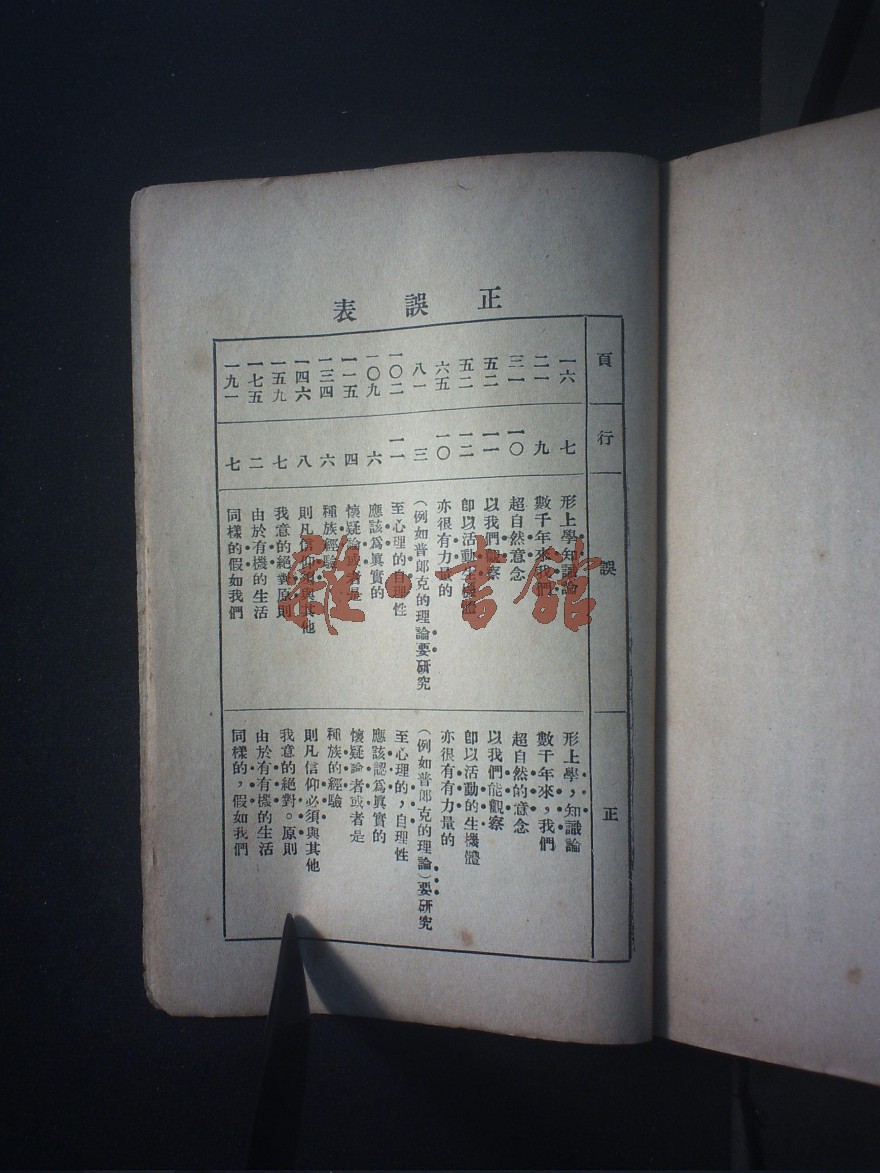 正誤表
頁 行 誤 正
一六 七 形上學知識論 形上學，知識論
二一 九 數千年來我們 數千年來，我們
三一 一〇 超自然意念 超自然的意念
五二 一一 以我們觀察 以我們能觀察
五二 一二 卽以活動生機體 卽以活動的生機體
六五 一〇 亦很有力量的 亦很有有力量的
八一 三 （例如普郎克的理論要研究 （例如普郎克的理論）要研究
一〇二 一一 至心理的自理性 至心理的，自理性
一〇九 六 應該爲眞實的 應該認爲眞實的
一一五 四 懷疑論或者是 懷疑論者或者是
一三四 六 種族經驗 種族的經驗
一四六 八 則凡信仰須與其他 則凡信仰必須與其他
一五九 七 我意的絕對原則 我意的絕對。原則
一七五 二 由於有機的生活 由於有有機的生活
一九一 七 同樣的假如我們 同樣的，假如我們
雜·書館